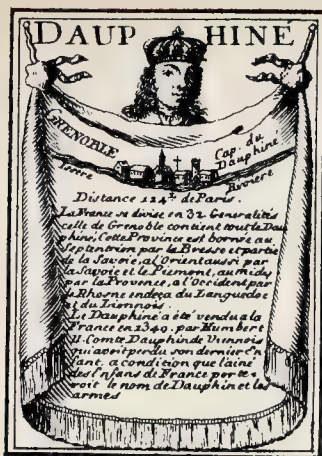 DAUPHINÉ
GRENOBLE
Cap. du
Dauphiné
Isere
Riviere
Distance 124ᴸ de Paris.
La France se divise en 32 Generalités
celle de Grenoble contient tout le Dau
phiné, Cette Province est bornée au
Septantrion par la Bresse et partie
de la Savoie, al Orient aussi par
la Savoie et le Piemont, au midy
par la Provence, a l'Occident par
le Rhosne endeça du Languedoc
et du Lionnois.
Le Dauphiné a été vendu a la
France en 1349. par Humbert
II. Comte Dauphin de Viennois
qui avoit perdu son dernier En
fant, a condition que l'ainé
des Enfans de France porte
roit le nom de Dauphin et les
armes